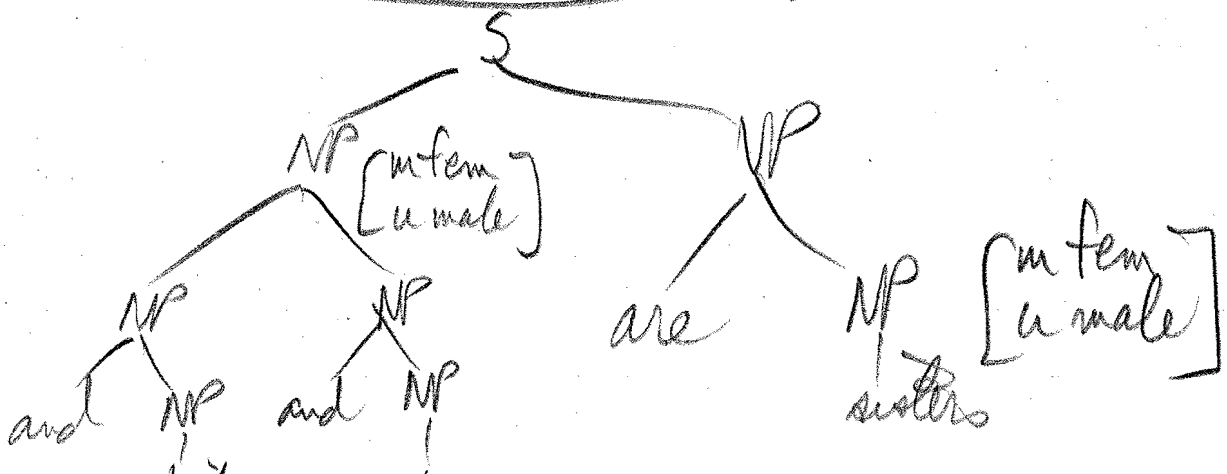 S
NP [m fem VP
u male]
NP NP are NP [m fem
u male]
and NP and NP sisters